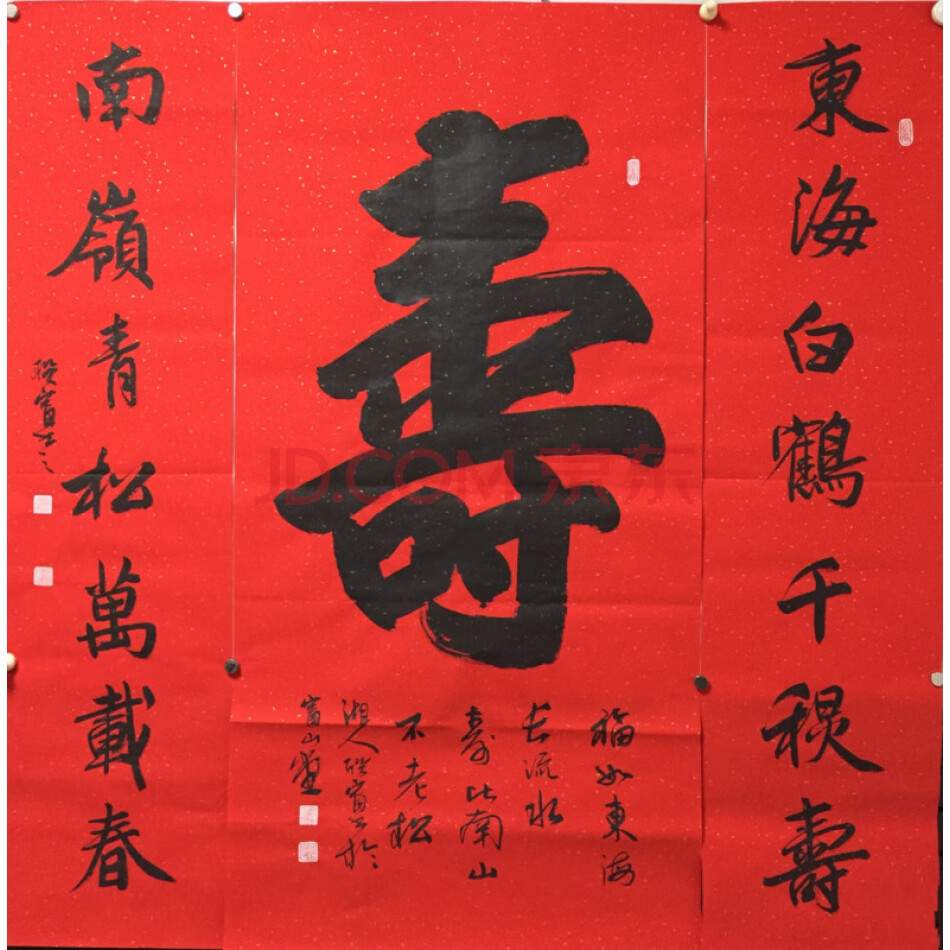 東海白鶴千秋壽
壽
福如東海
長流水
壽比南山
不老松
湘人
富山
南嶺青松萬載春
JD.COM 京东